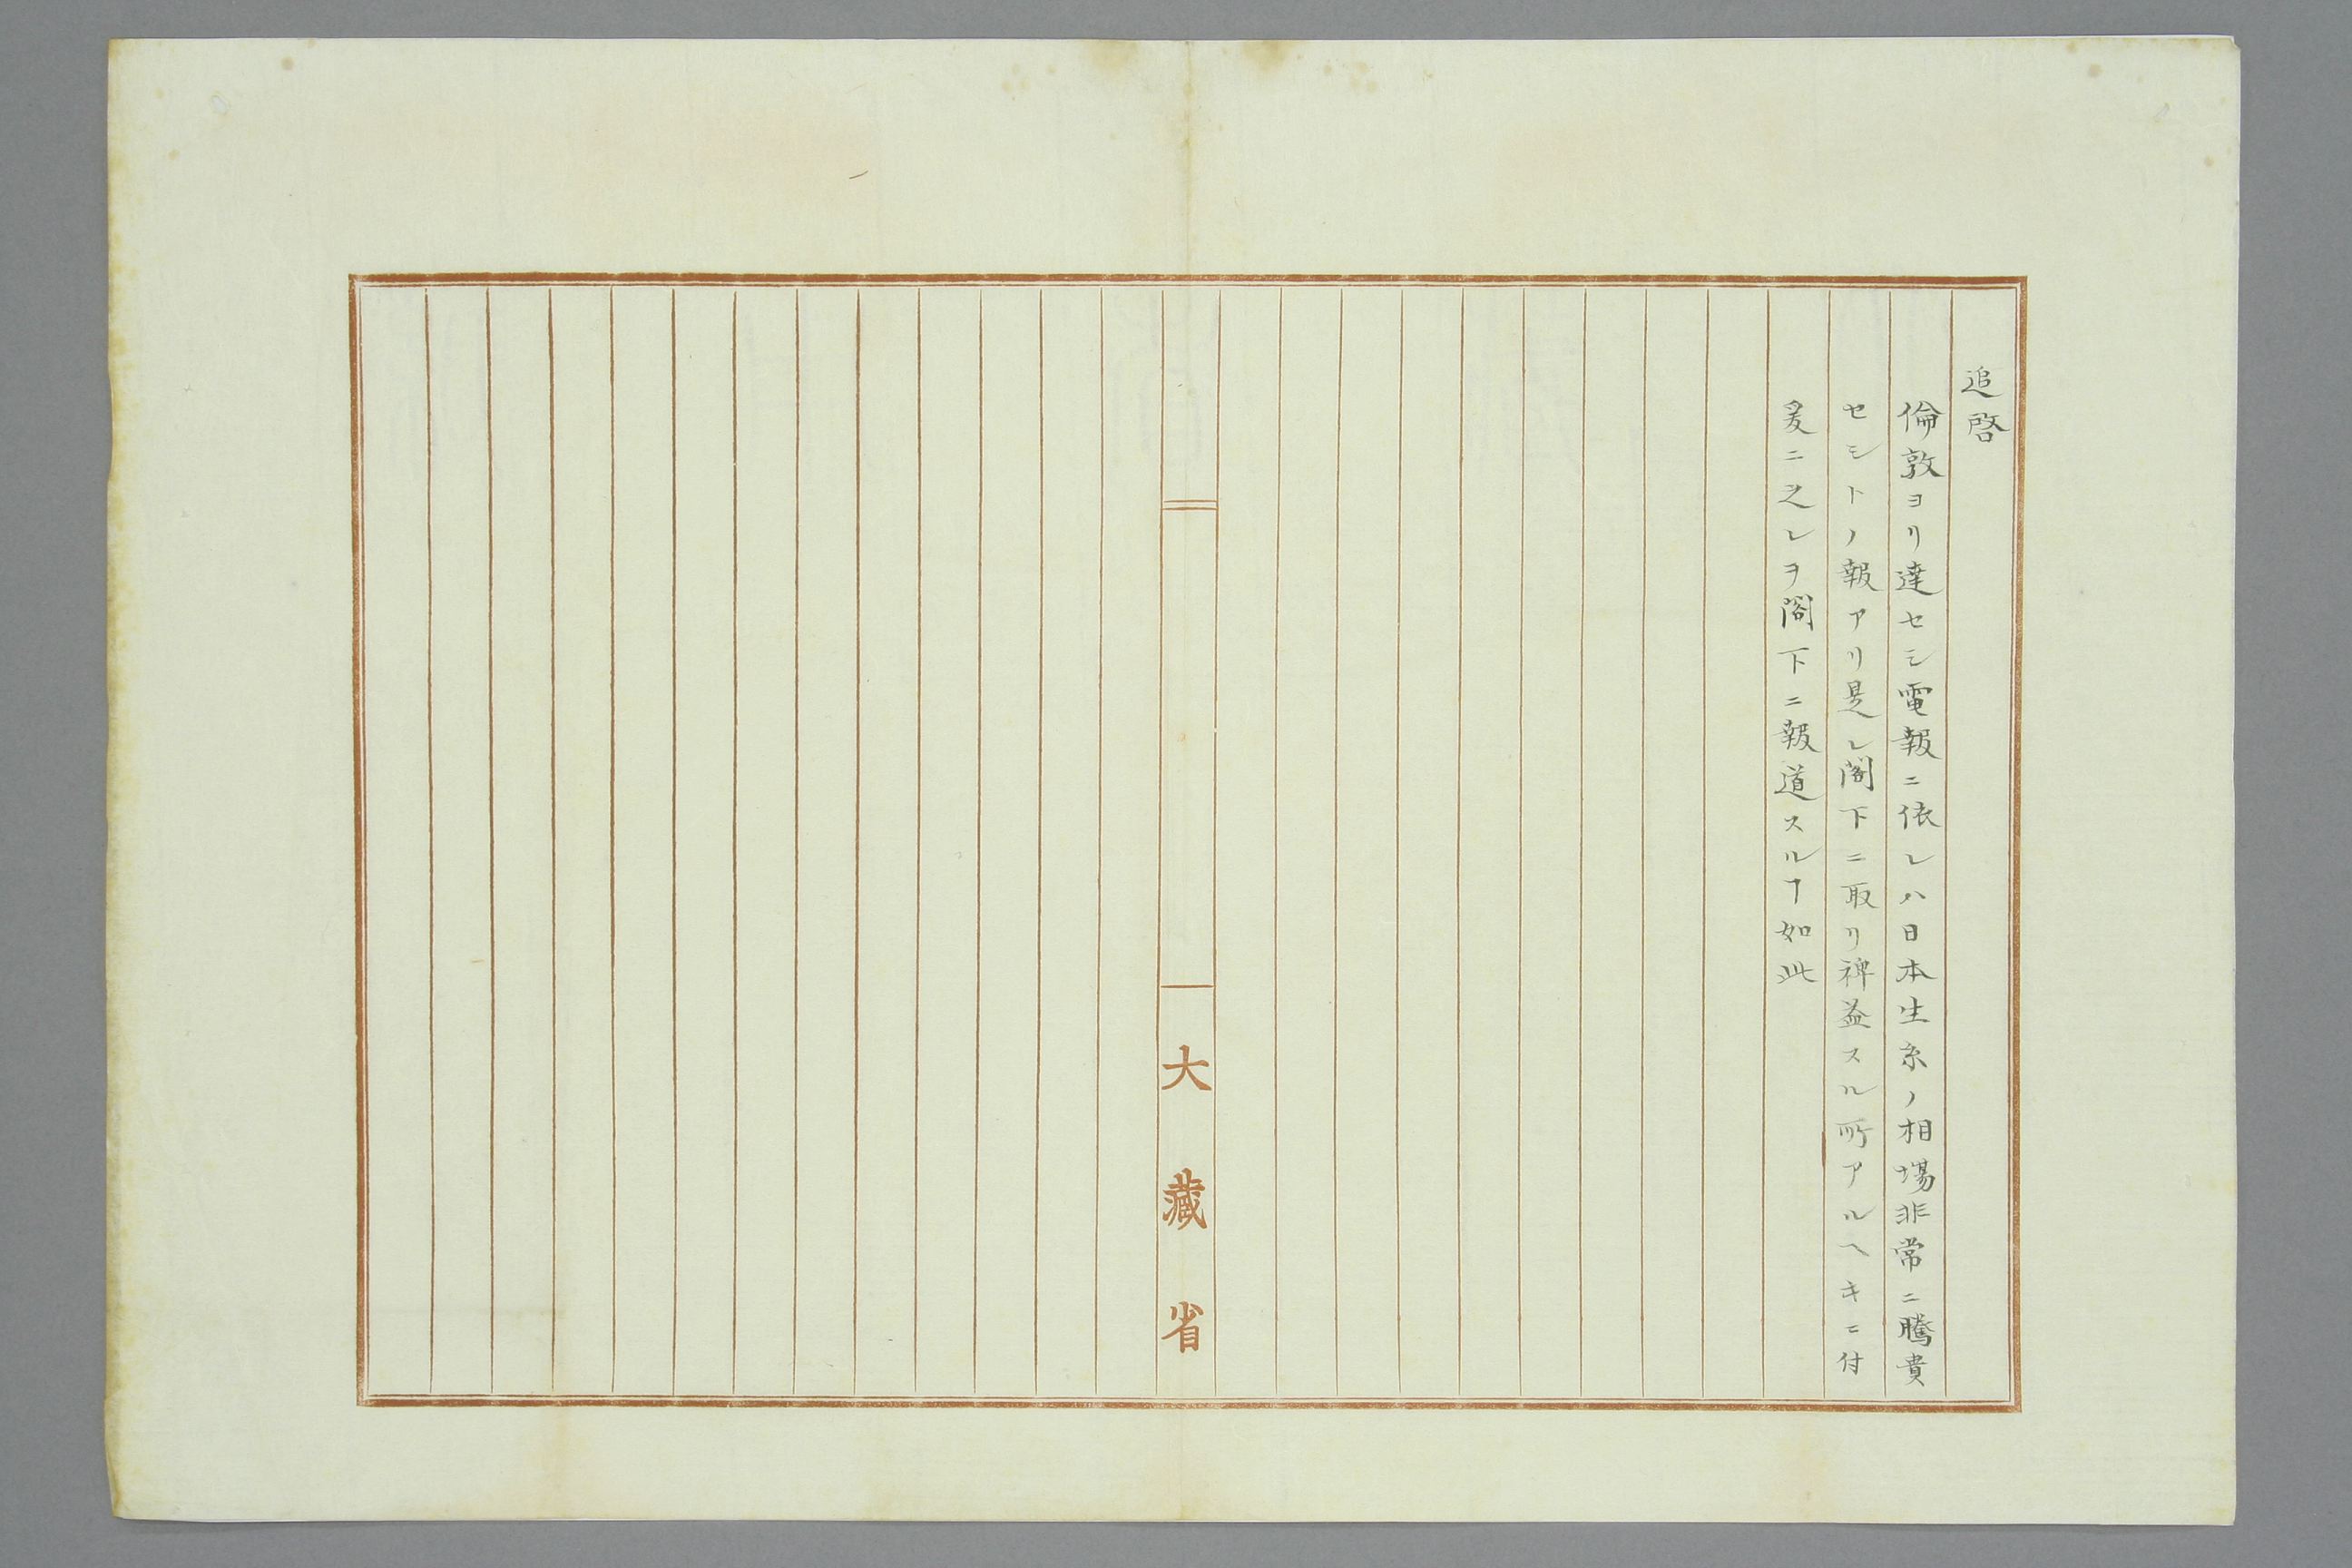 追啓
倫敦ヨリ達セシ電報ニ依レハ日本生糸ノ相場非常ニ騰貴
セシトノ報アリ是レ閣下ニ取リ裨益スル所アルヘキニ付
爰ニ之レヲ閣下ニ報道スルヿ如此
大藏省